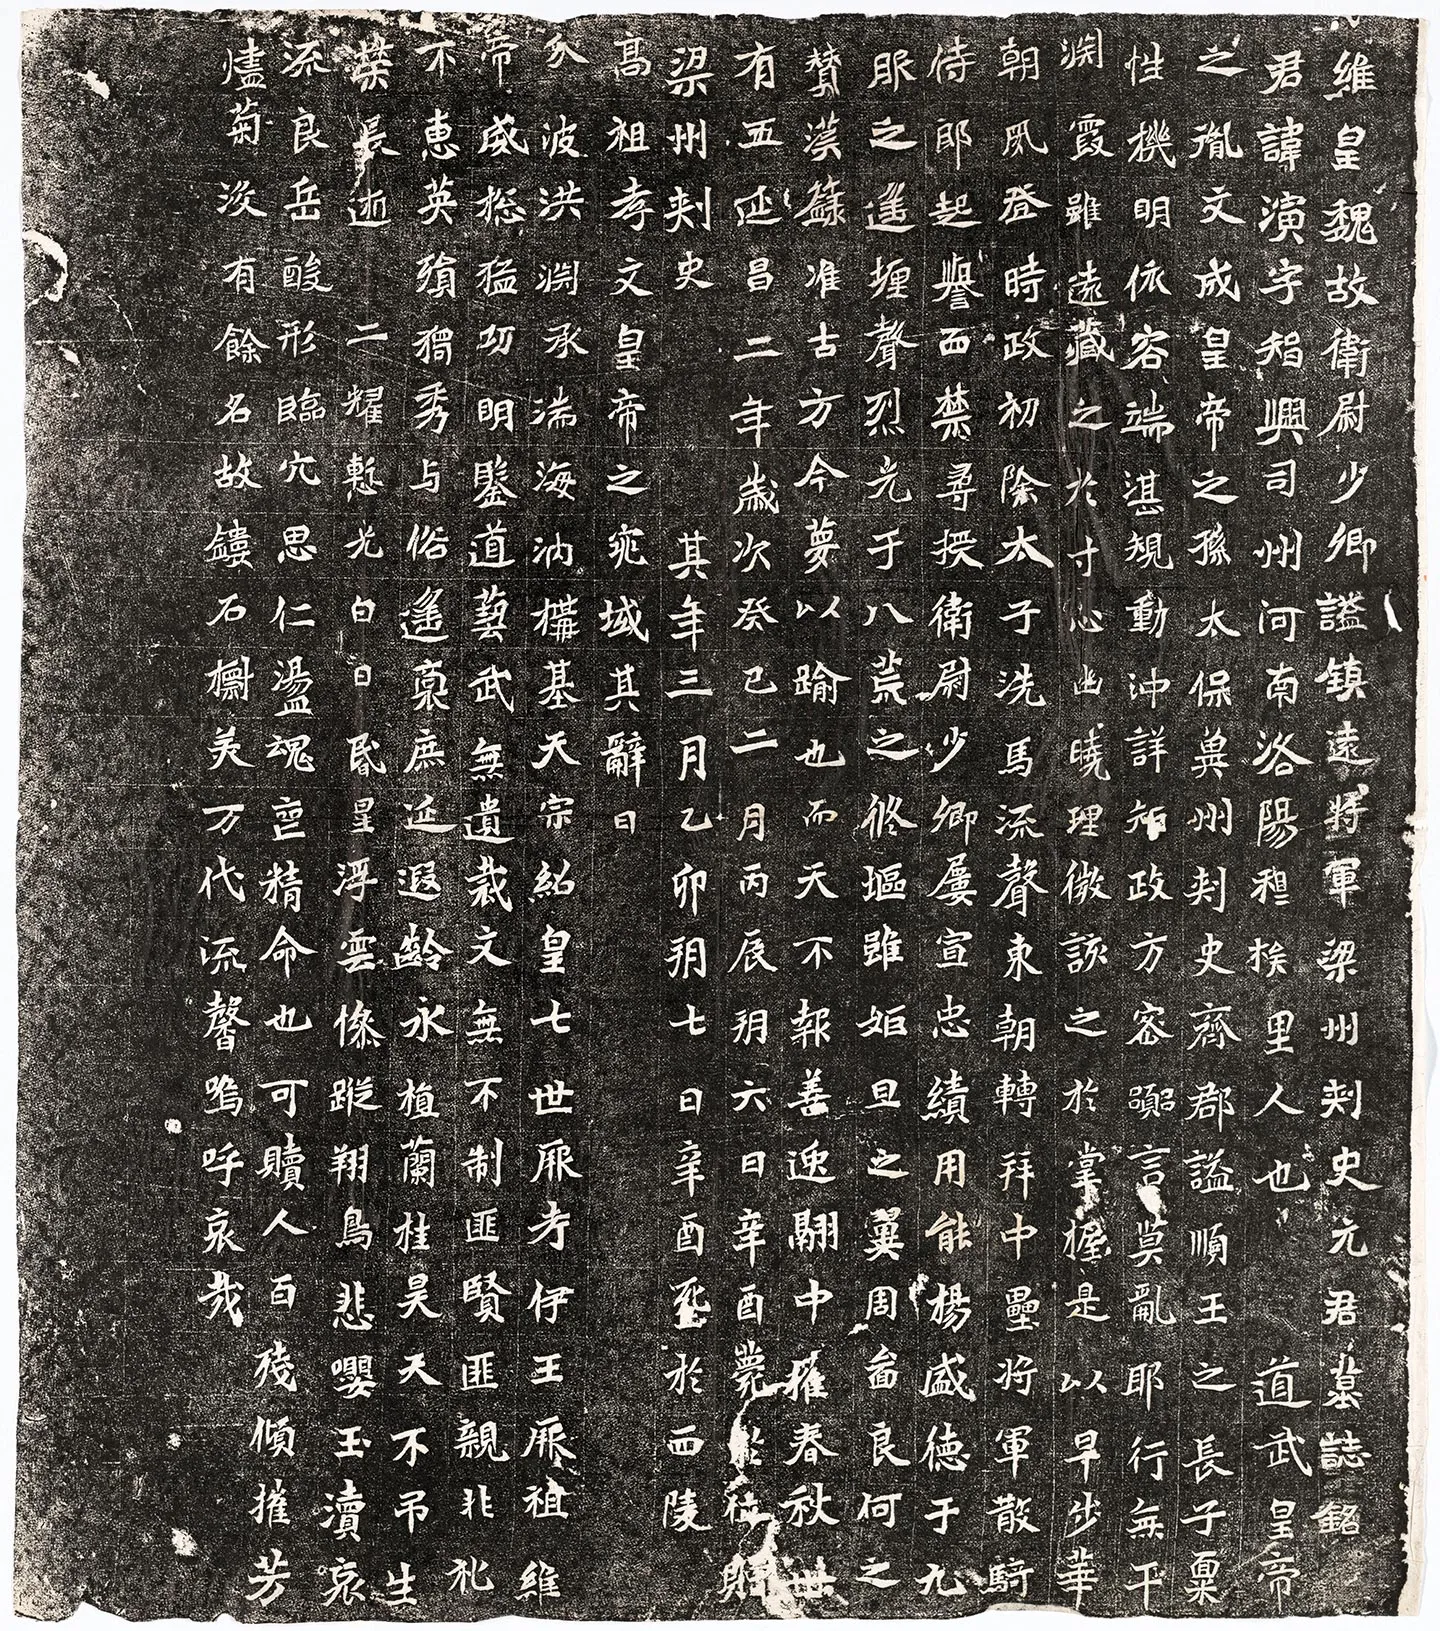 維皇魏故衛尉少卿謚鎮遠將軍梁州刾史元君墓誌銘
君諱演字智興司州河南洛陽穆族里人也 道武皇帝
之胤文成皇帝之孫太保兾州刾史齊郡謚順王之長子稟
性機明依容端湛規動沖詳知政方容 言莫亂耶行無干
淵霞雖遠藏之於寸心幽曉理微該之於掌握是以早步華
朝夙登時政初除太子洗馬流聲東朝轉拜中壘將軍散騎
侍郎起譽西禁尋授衛尉少卿屢宣忠績用能楊盛德于九
服之遥堙聲烈光于八荒之脩塸雖姬旦之翼周畜良何之
贊漢籙准古方今蔑以踰也而天不報善逸翮中摧春秋卅
有五延昌二年歲次癸巳二月丙辰朔六日辛酉薨於 苐贈
梁州刾史 其年三月乙卯朔七日辛酉窆於西陵
髙祖孝文皇帝之兆域其辭曰
分波洪淵承湍海汭構基天宗紹皇七世厥考伊王厥祖維
帝威惣猛功明鑒道藝武無遺裁文無不制匪賢匪親非
不惠英殞獨秀与俗遥裒庶延遐齡永植蘭桂昊天不吊生
榮長逝 二耀慙光白日昏星浮雲慘蹤翔鳥悲嚶玉瀆哀
流良岳酸形臨穴思仁盪魂亡精命也可贖人百殘傾摧芳
燼菊浚有餘名故鏤石櫥美万代流馨嗚呼哀哉